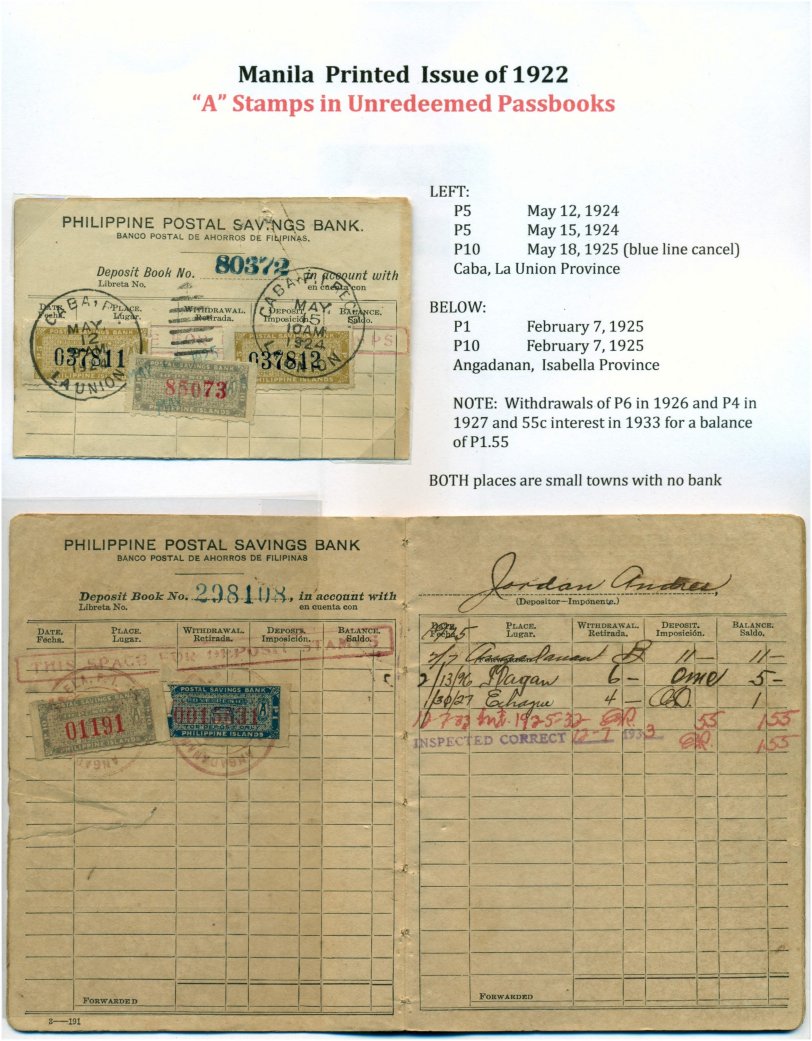 Manila Printed Issue of 1922
“A” Stamps in Unredeemed Passbooks
LEFT:
P5 May 12, 1924
P5 May 15, 1924
P10 May 18, 1925 (blue line cancel)
Caba, La Union Province
BELOW:
P1 February 7, 1925
P10 February 7, 1925
Angadanan, Isabella Province
NOTE: Withdrawals of P6 in 1926 and P4 in
1927 and 55c interest in 1933 for a balance
of P1.55
BOTH places are small towns with no bank
PHILIPPINE POSTAL SAVINGS BANK.
BANCO POSTAL DE AHORROS DE FILIPINAS.
Deposit Book No. 80372 in account with
Libreta No. en cuenta con
DATE. PLACE. WITHDRAWAL. DEPOSIT. BALANCE.
Fecha. Lugar. Retirada. Imposición. Saldo.
CABA, P.I.
MAY
12
LA UNION
MAY
15
10AM
1924
037811
037812
85073
PHILIPPINE ISLANDS
PHILIPPINE POSTAL SAVINGS BANK
BANCO POSTAL DE AHORROS DE FILIPINAS
Deposit Book No. 298108, in account with
Libreta No. en cuenta con
DATE. PLACE. WITHDRAWAL. DEPOSITS. BALANCE.
Fecha. Lugar. Retirada. Imposición. Saldo.
THIS SPACE FOR DEPOSIT STAMPS
01191
POSTAL SAVINGS BANK
0015531 A
PHILIPPINE ISLANDS
Jordan Andres,
(Depositor—Imponente.)
DATE. PLACE. WITHDRAWAL. DEPOSIT. BALANCE.
Fecha. Lugar. Retirada. Imposición. Saldo.
2/7 Angadanan 11— 11—
2/13/26 Ilagan 6— 5—
1/30/27 Echague 4— 1
12-7-33 Int. 1925-32 55 1.55
INSPECTED CORRECT 12-7 1933 1.55
FORWARDED
FORWARDED
S—191